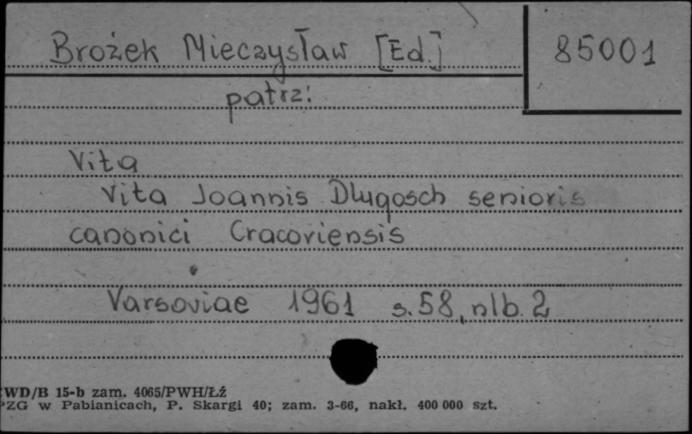 Brożek Mieczysław [Ed.] 85001
patrz:
Vita
Vita Joannis Dlugosch senioris
canonici Cracoviensis
Varsoviae 1961 s. 58, nlb. 2
WD/B 15-b zam. 4065/PWH/Łź
PZG w Pabianicach, P. Skargi 40; zam. 3-66, nakł. 400 000 szt.